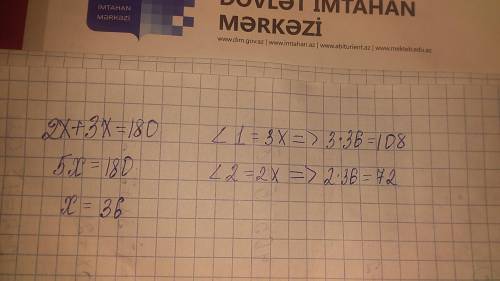 DÖVLƏT İMTAHAN
İMTAHAN
MƏRKƏZİ
MƏRKƏZİ
www.dim.gov.az | www.imtahan.az | www.abiturient.az | www.mekteb.edu.az
2x+3x=180
∠1=3x=>3·36=108
5x=180
∠2=2x=>2·36=72
x=36